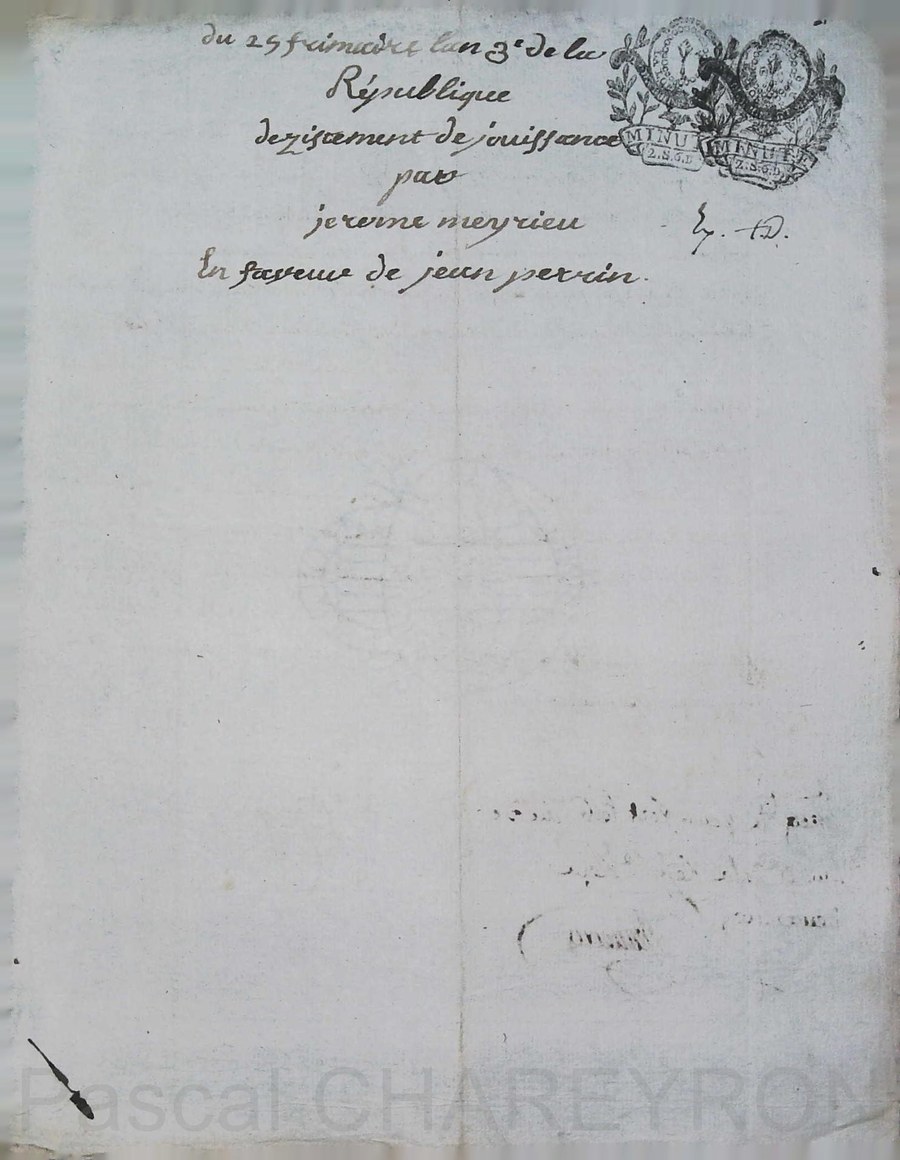 du 25 frimaire lan 3e de la
République
dezistement de jouissance
par
jerome meyrieu
En faveur de jean perrin.
MINUTE
2.S.6.D
MINUTE
2.S.6.D
Pascal CHAREYRON